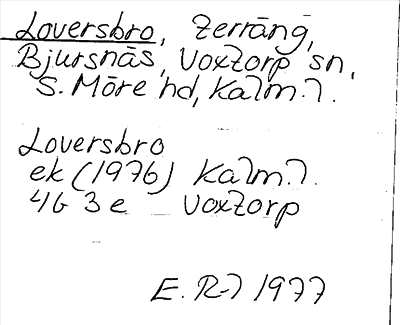 Loversbro, Terräng,
Bjursnäs, Voxtorp sn,
S. Möre hd, Kalm. l.
Loversbro
ek (1976) Kalm. l.
4G 3e Voxtorp
E. R-l 1977